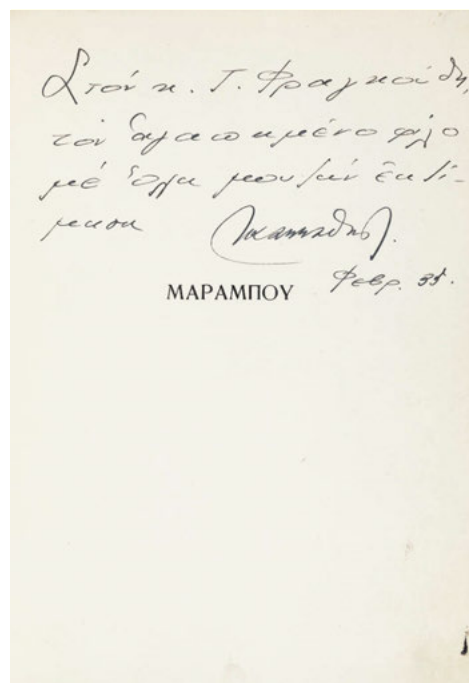 Στόν κ. Γ. Φραγκούδη,
τόν ἀγαπημένο φίλο
μέ ὅλη μου τήν ἐκτί-
μηση
ΜΑΡΑΜΠΟΥ
Φεβρ. 35.